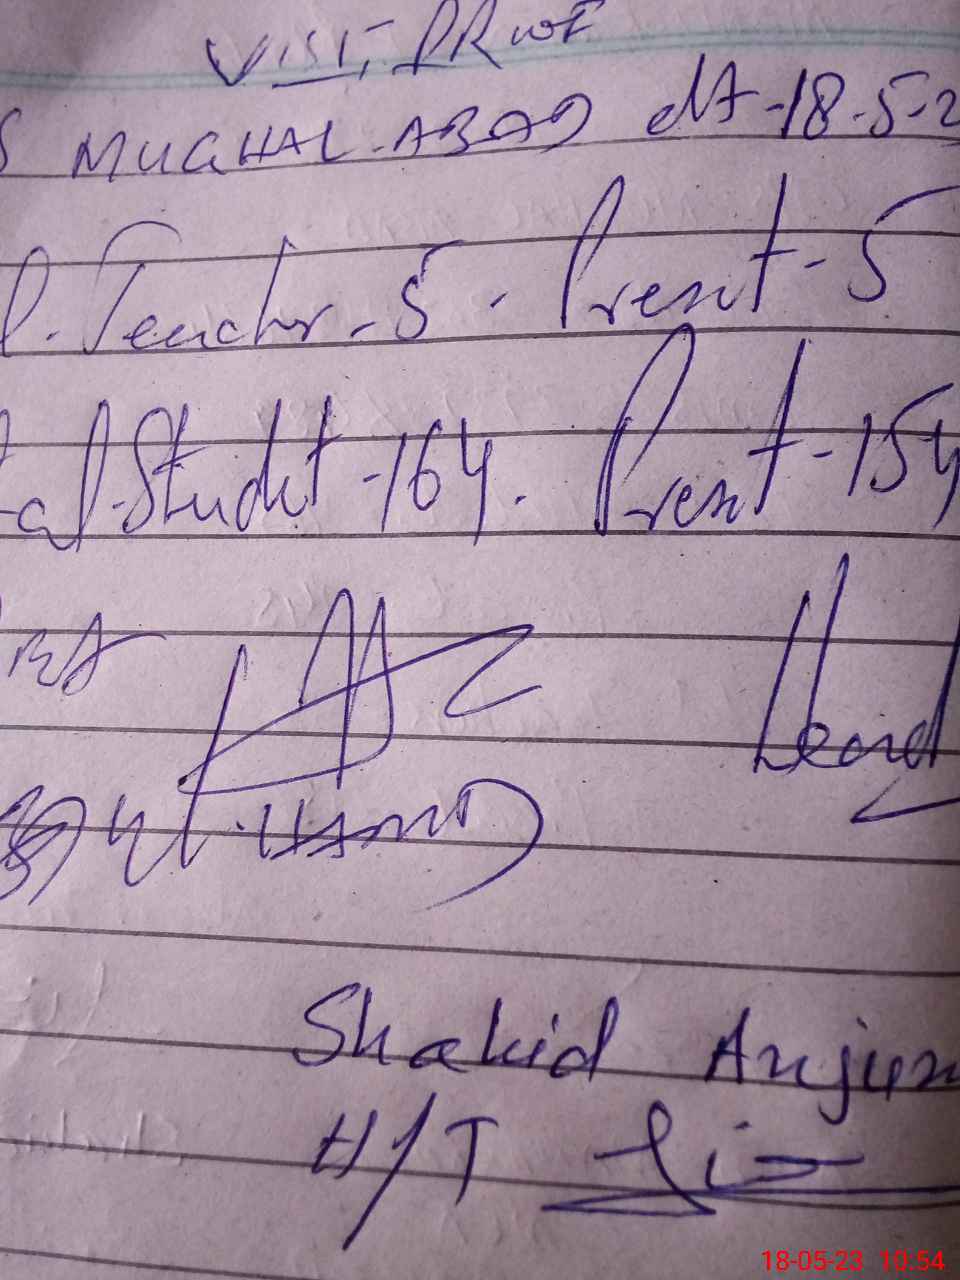 VISIT PROOF
S MUGHAL ABAD dt-18-5-2
l. Teacher-5. Present-5
tal Student-164. Present-154
Head
Shahid Anjum
H/T
18-05-23 10:54